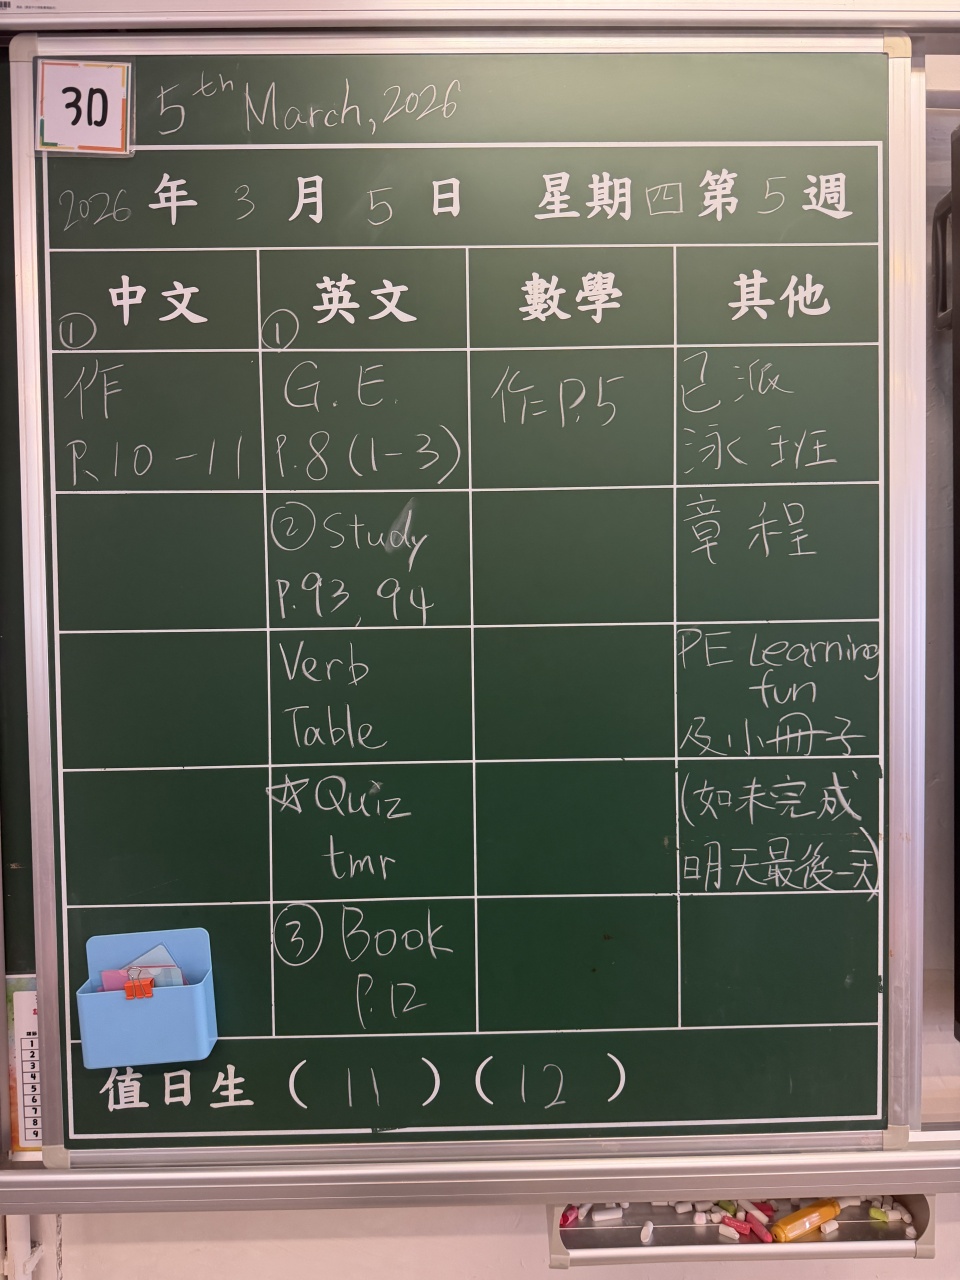 3D
5th March, 2026
2026 年 3 月 5 日 星期四 第 5 週
中文 英文 數學 其他
① ①
作 G.E. 作 P.5 已派
P.10-11 P.8 (1-3) 泳班
② Study 章程
P.93, 94
Verb PE Learning
fun
Table 及小冊子
☆ Quiz (如未完成
tmr 明天最後一天)
③ Book
P.12
值日生 ( 11 ) ( 12 )
1
2
3
4
5
6
7
8
9